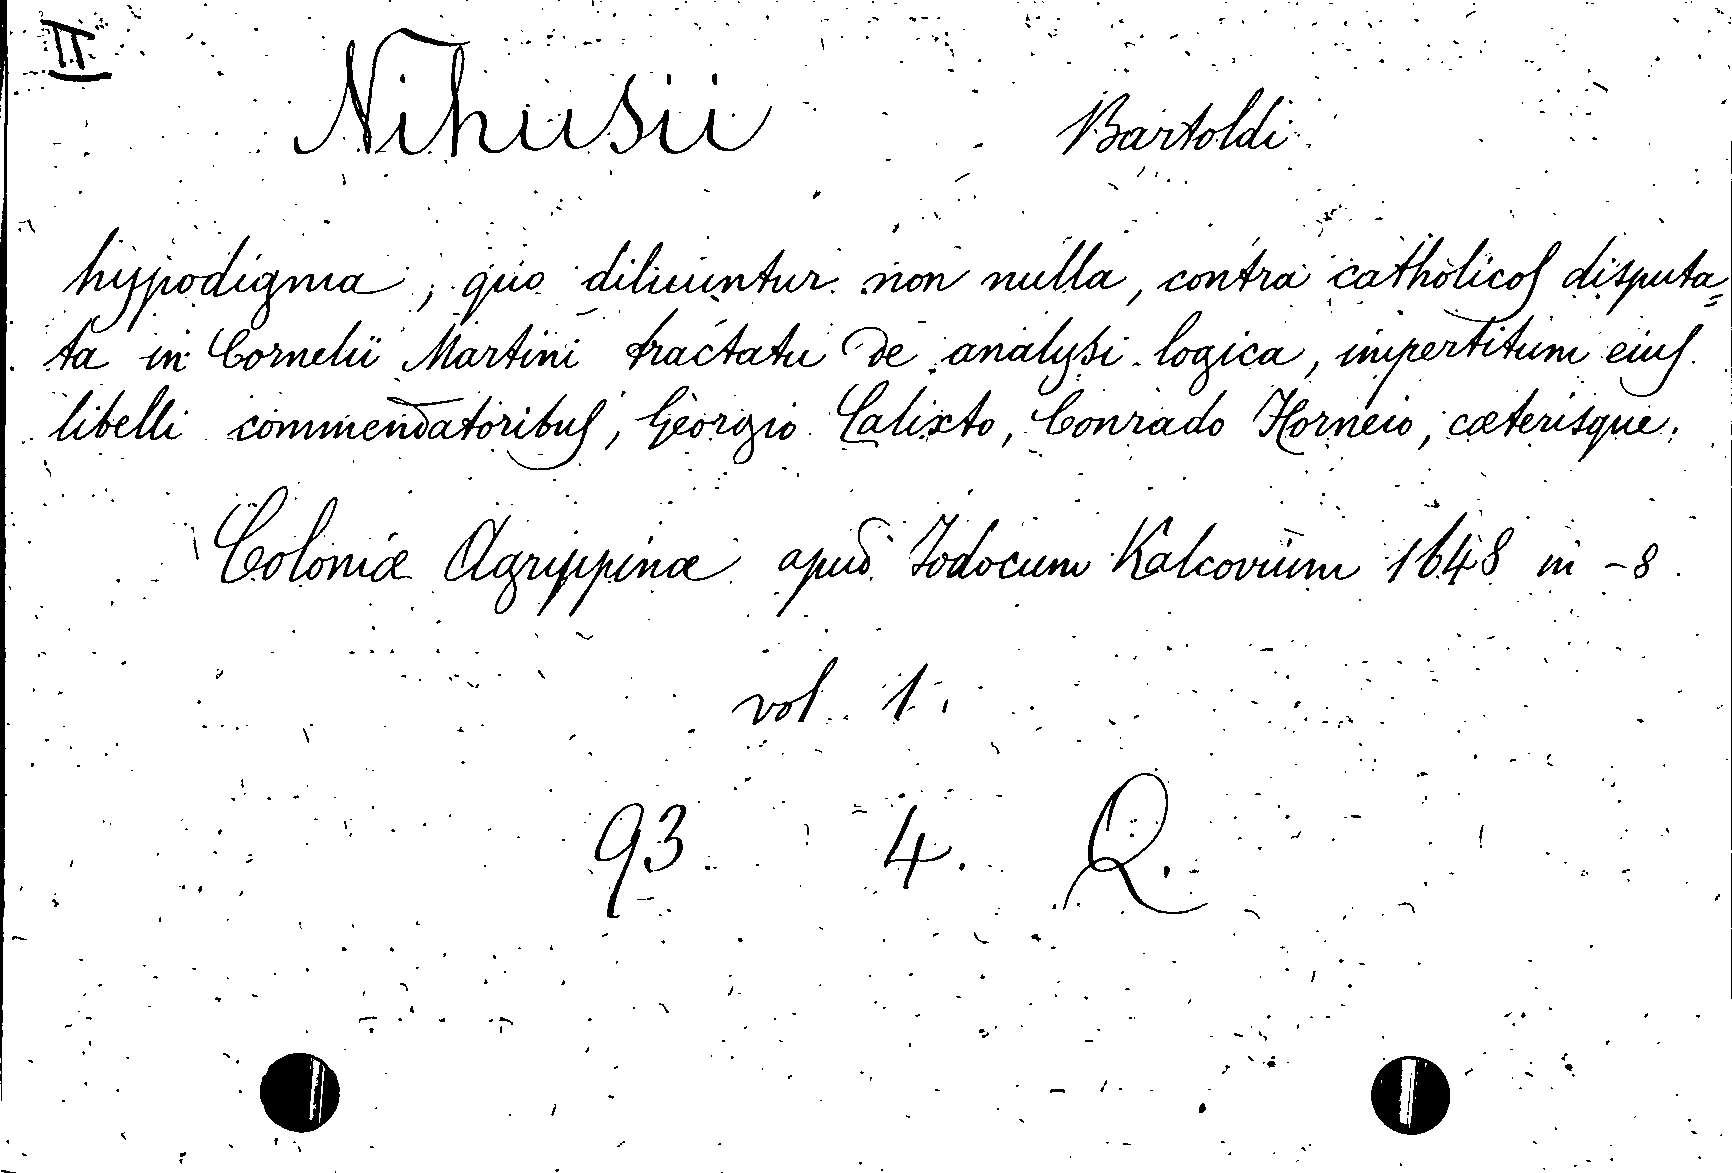 II
Nihusii Bartoldi
hypodigma, quo diluuntur non nulla, contra catholicos disputa=
ta in Cornelii Martini tractatu de analysi logica, impertitum eius
libelli commendatoribus, Georgio Calixto, Conrado Horneio, cæterisque.
Coloniæ Agrippinæ apud Jodocum Kalcovium 1648 in -8
vol 1.
93 4. Q.